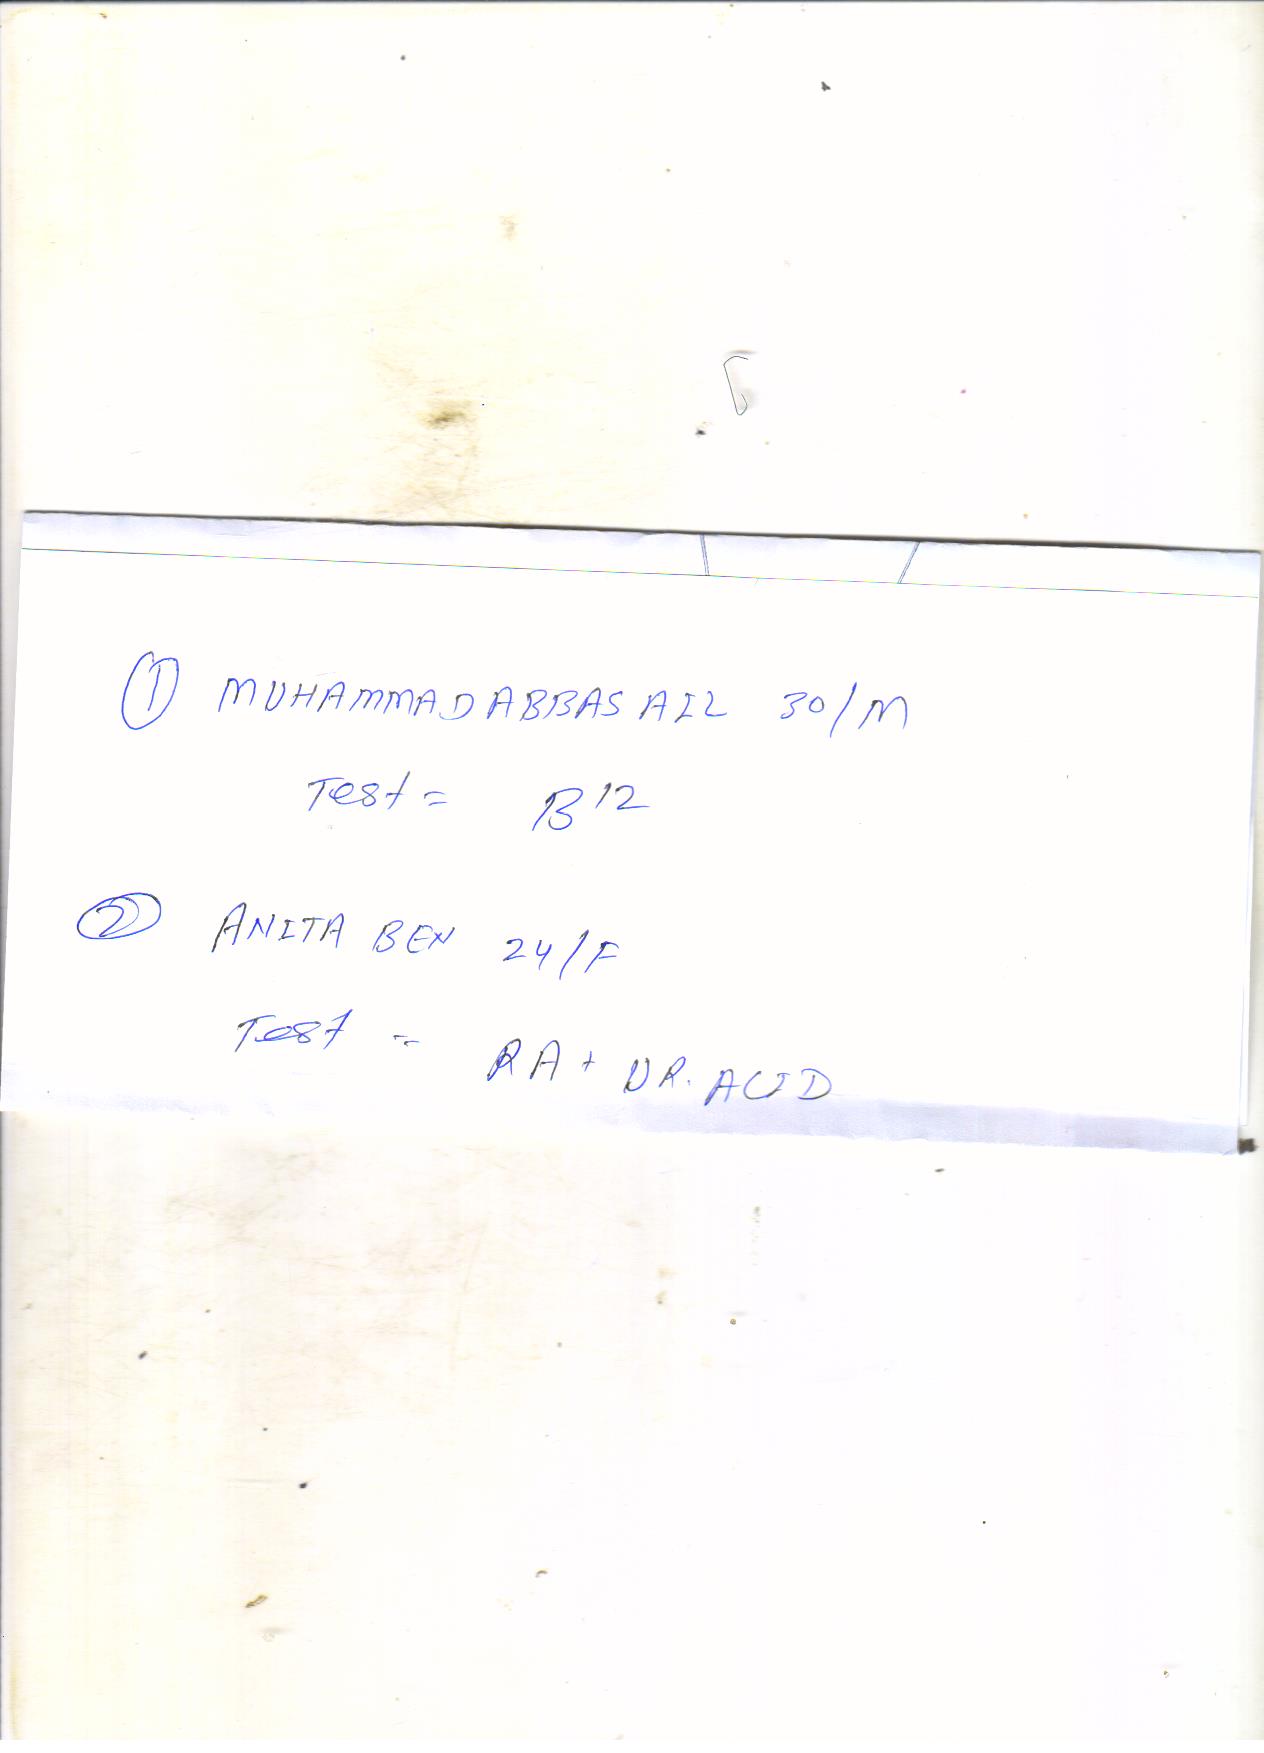 1 MUHAMMAD ABBAS AIL 30/M
Test = B12
2 ANITA BEN 24/F
Test = RA + UR. ACID